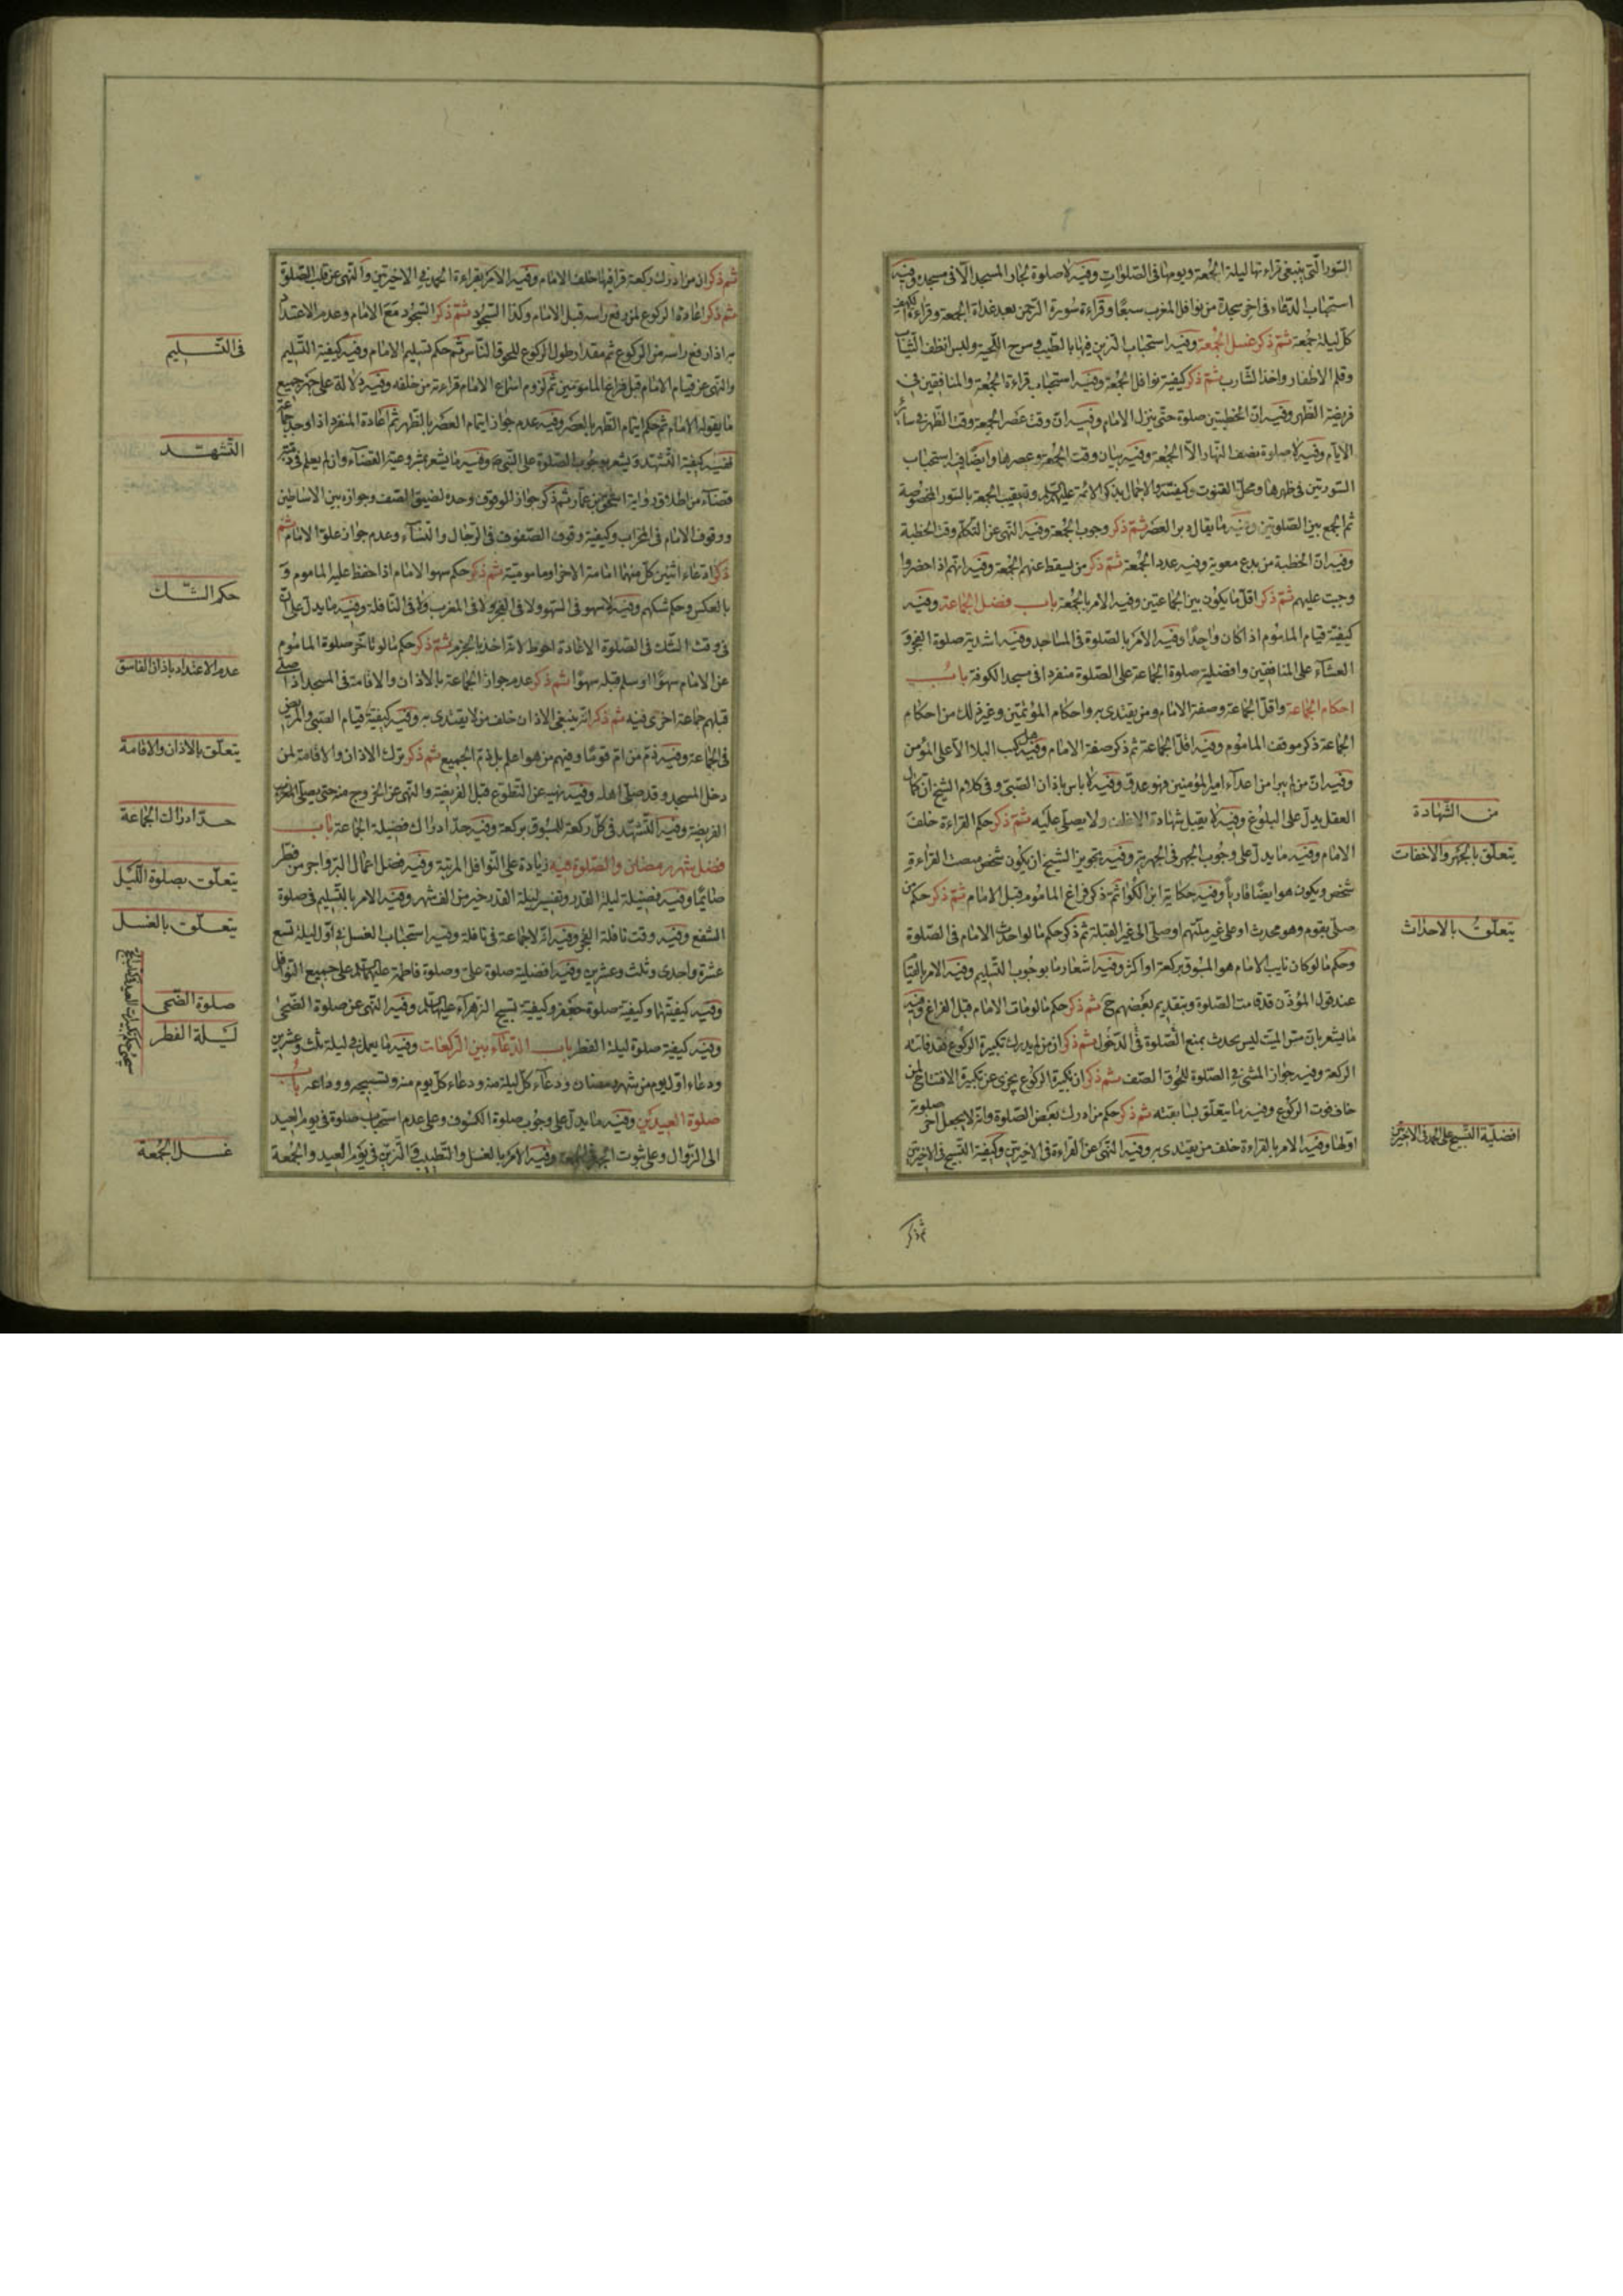 السّور الّتى ينبغى قراءتها ليلة الجُمعة ويومها فى الصّلوات وفيه لا صلوة لجار المسجد الّا فى مسجده وفيه
استحباب الدّعاء فى اخر سجدة من نوافل المغرب سبعًا وقراءة سُورة الرّحمن بعد غداة الجمعة وقراءة الكهف
كلّ ليلة جمعة ثمّ ذكر غسل الجُمعة وفيه استحباب التزين فيها بالطيب وسرح اللّحية ولبس انظف الثّياب
وقلم الاظفار واخذ الشّارب ثمّ ذكر كيفيّة نوافل الجُمعة وفيه استحباب قراءة الجُمعة والمنافقين فى
فريضة الظّهر وفيه انّ الخطبتين صلوة حتّى ينزل الامام وفيه انّ وقت عصر الجمعة وقت الظّهر فى سائر
الايّام وفيه لا صلوة نصف النّهار الّا الجُمعة وفيه بيان وقت الجُمعة وعصرها وايضًا فيه استحباب
السّورتين فى ظهرها ومحلّ القنوت وكيفيّته والاجمال بذكر الائمّة عليهم السّلم وتعقيب الجمعة بالسّور المخصُوصة
ثمّ الجمع بين الصّلوتين وفيه ما يقال دبر العصر ثمّ ذكر وجوب الجُمعة وفيه النّهى عن التّكلّم وقت الخطبة
وفيه انّ الخطبة من بدع معوية وفيه عدد الجُمعة ثمّ ذكر من يسقط عنهم الجُمعة وفيه انّهم اذا حضروا
وجبت عليهم ثمّ ذكر اقلّ ما يكون بين الجماعتين وفيه الامر بالجُمعة باب فضل الجماعة وفيه
كيفيّة قيام الماموُم اذا كان واحِدًا وفيه الامر بالصّلوة فى المساجد وفيه اشديّة صلوة الفجر و
العشاء على المنافقين وافضليّة صلوة الجماعة على الصّلوة منفردا فى مسجد الكوفة بابُ
احكام الجماعة واقلّ الجماعة وصفة الامام ومن يقتدى به واحكام المؤتمّين وغير ذلك من احكام
الجماعة ذكر موقف الماموُم وفيه اقلّ الجماعة ثمّ ذكر صفة الامام وفيه هل كتب البلاء الّا على المؤمن
وفيه انّ من لم يبرا من اعداء امير المؤمنين فهو عدوّ وفيه لا باس باذان الصّبىّ وفى كلام الشّيخ انّ كمال
العقل يدلّ على البلوُغ وفيه لا يقبل شهادة الاغلف ولا يصلّى عليه ثمّ ذكر حكم القراءة خلف
الامام وفيه ما يدلّ على وجُوب الجهر فى الجهريّة وفيه تجويز الشّيخ ان يكون شخص ينصت القراءة
شخص ويكون هو ايضًا قارياً وفيه حكاية ابن الكوّا ثمّ ذكر فراغ الماموم قبل الامام ثمّ ذكر حكم من
صلّى بقوم وهو محدث او على غير ملّتهم او صلّى الى غير القبلة ثمّ ذكر حكم ما لو احدث الامام فى الصّلوة
وحكم ما لو كان نايب الامام هو المسبوق بركعة او اكثر وفيه اشعار ما بوجوب التّسليم وفيه الامر بالقيام
عند قول المؤذّن قد قامت الصّلوة وبتقديم بعضهم ح ثمّ ذكر حكم ما لو مات الامام قبل الفراغ وفيه
ما يشعر بانّ مسّ الميّت ليس بحدث يمنع الصّلوة فى الدّخُول ثمّ ذكر ان من لم يدرك تكبيرة الركوُع فقد فاتته
الركعة وفيه جواز المشى فى الصّلوة للحُوق الصّف ثمّ ذكر ان تكبيرة الركوع يجزى عن تكبيرة الافتتاح لمن
خاف فوت الركوُع وفيه ما يتعلّق بسابقته ثمّ ذكر حكم من ادرك بعض الصّلوة وانّه لا يجعل اخر صلوته
اوّلها وفيه الامر بالقراءة خلف من يقتدى به وفيه النّهى عن القراءة فى الاخيرتين وكيفيّة التّسبيح فى الاخيرتين
ثم ذكر
من الشّهادة
يتعلّق بالجهر والاخفات
يتعلّق بالاحداث
افضليّة التّسبيح على الحمد فى الاخيرتين
ثمّ ذكر ان من ادرك ركعة قرا فيها خلف الامام وفيه الامر بقراءة الحمد فى الاخيرتين والنّهى عن قلب الصّلوة
ثمّ ذكر اعادة الركوع لمن رفع راسه قبل الامام وكذا السّجُود ثمّ ذكر السّجُود مع الامام وعدم الاعتداد
به اذا رفع راسه من الركوع ثم مقدار طول الركوع للحوق النّاس ثم حكم تسليم الامام وفيه كيفيّة التّسليم
والنّهى عن قيام الامام قبل فراغ المامومين ثم لزوم اسماع الامام قراءته من خلفه وفيه دلالة على جهر جميع
ما يقوله الامام ثم حكم ايتمام الظّهر بالعصر وفيه عدم جواز ايتمام العصر بالظّهر ثم اعادة المنفرد اذا وجد جماعة
وفيه كيفيّة التّشهّد ويشعر بوجُوب الصّلوة على النّبىّ وفيه ما يشعر بمشروعيّة القضاء وان لم يعلم فى ذمّته
قضاء من اطلاق رواية اسحق بن عمّار ثمّ ذكر جواز الوقوف وحده لضيق الصّف وجوازه بين الاساطين
ووقوف الامام فى المحراب وكيفيّة وقوف الصّفوف فى الرّجال والنّساء وعدم جواز علوّ الامام ثمّ
ذكر ادّعاء اثنين كلّ منهما امامة الاخر او ماموميّة ثمّ ذكر حكم سهو الامام اذا حفظ عليه الماموم و
بالعكس وحكم شكّهم وفيه لا سهو فى السّهو ولا فى الفجر ولا فى المغرب ولا فى النّافلة وفيه ما يدلّ على انّ
فى وقت الشّك فى الصّلوة الاعادة احوط لانّه اخذ بالجزم ثمّ ذكر حكم ما لو تاخّر صلوة الماموُم
عن الامام سهوًا او سلّم قبله سهوًا ثمّ ذكر عدم جواز الجماعة بالاذان والاقامة فى المسجد اذا صلّى
قبلهم جماعة اخرى فيه ثمّ ذكر انّه ينبغى الاذان خلف من لا يقتدى به وفيه كيفيّة قيام الصّبى والمريض
فى الجماعة وفيه ذم من امّ قومًا وفيهم من هو اعلم بل ذمّ الجميع ثمّ ذكر ترك الاذان والاقامة لمن
دخل المسجد وقد صلّى اهله وفيه نهيه عن التّطوّع قبل الفريضة والنّهى عن الخروج منه حتّى يصلّى
الفريضة وفيه التّشهّد فى كلّ ركعة للمسبُوق بركعة وفيه حدّ ادراك فضيلة الجماعة باب
فضل شهر رمضان والصّلوة فيه زيادة على النّوافل المرتبة وفيه فضل اعمال البرّ واجر من فطّر
صائمًا وفيه فضيلة ليلة القدر وتفسير ليلة القدر خير من الف شهر وفيه الامر بالتّسليم فى صلوة
الشفع وفيه وقت نافلة الفجر وفيه انّه لا جماعة فى نافلة وفيه استحباب الغسل فى اوّل ليلة تسع
عشرة واحدى وثلث وعشرين وفيه افضليّة صلوة علىّ وصلوة فاطمة عليهما السّلم على جميع النّوافل
وفيه كيفيّتها وكيفيّة صلوة جعفر وكيفيّة تسبيح الزهراء عليها السّلم وفيه النّهى عن صلوة الضّحى
وفيه كيفيّة صلوة ليلة الفطر باب الدّعاء بين الرّكعات وفيه ما يعمل فى ليلة ثلث وعشرين
ودعاء اوّل يوم من شهر رمضان ودعاء كلّ ليلة منه ودعاء كلّ يوم منه وتسبيحه ووداعه باب
صلوة العيدين وفيه ما يدلّ على وجُوب صلوة الكسُوف وعلى عدم استحباب صلوة فى يوم العيد
الى الزّوال وعلى ثبوت وفيه الامر بالغسل والتّطيب والتّزيّن فى يوم العيد والجُمعة
فى التّسليم
التّشهّد
حكم الشّك
عدم الاعتداد باذان الفاسق
يتعلّق بالاذان والاقامة
حدّ ادراك الجماعة
يتعلّق بصلوة اللّيل
يتعلّق بالغسل
صلوة الضّحى
ليلة الفطر
غسل الجُمعة